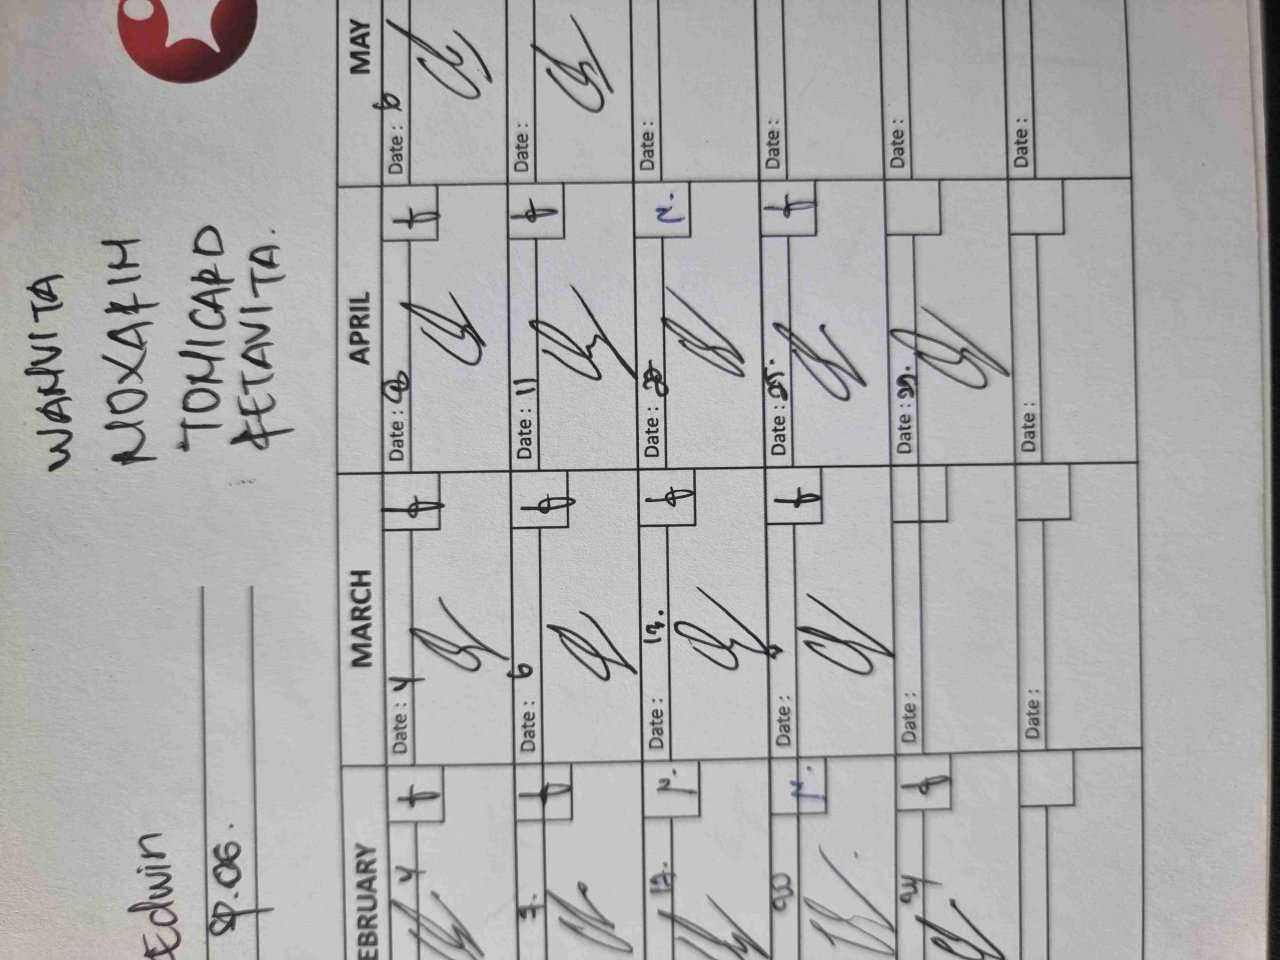 WANVITA
NOXAFIM
TOMICARD
: FETAVITA.
Edwin
SP.06.
EBRUARY MARCH APRIL MAY
4 Date : 4 Date : 8 Date : 6
f f f
7. Date : 6 Date : 11 Date :
f f f
12. Date : 13. Date : Date :
N. f N.
20 Date : Date : 25. Date :
N. f f
24 Date : Date : 29. Date :
f
Date : Date : Date :